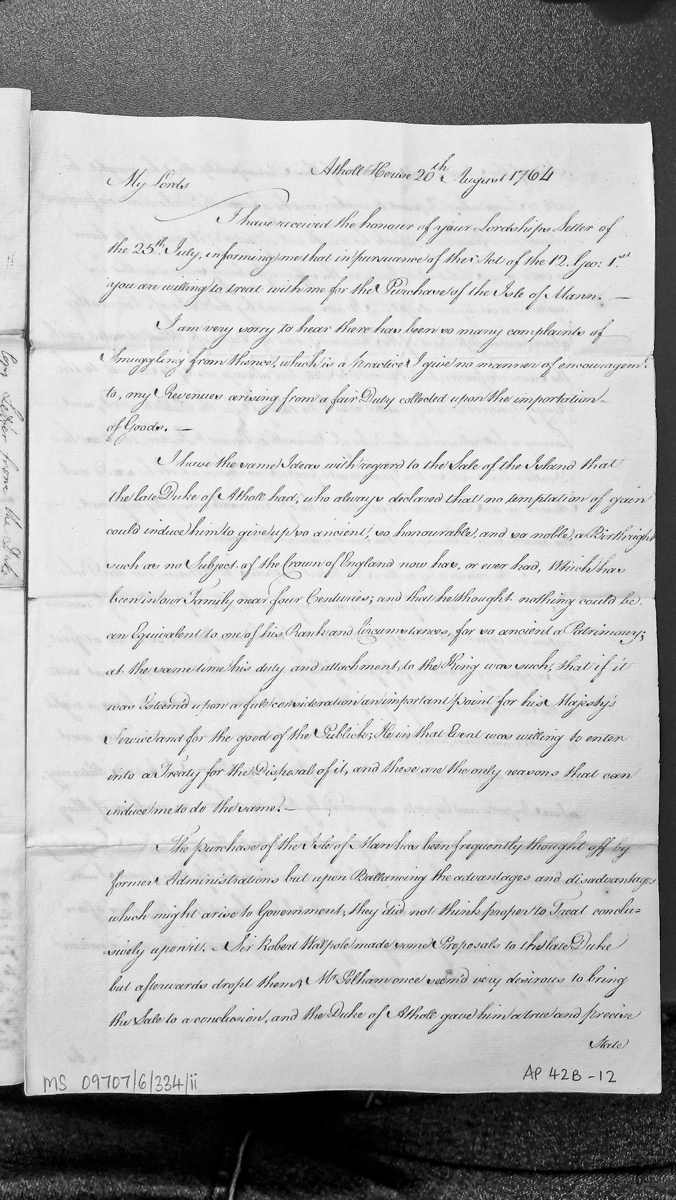 Atholl House 20th August 1764
My Lords
I have received the honour of your Lordships Letter of
the 25th July, informing me that in pursuance of the Act of the 12. Geo: 1st
you are willing to treat with me for the Purchase of the Isle of Mann. —
I am very sorry to hear there has been so many complaints of
Smuggling from thence, which is a Practice I give no manner of encouragemt
to, my Revenues arising from a fair Duty collected upon the importation
of Goods. —
I have the same Ideas with regard to the Sale of the Island that
the late Duke of Atholl had, who always declared that no temptation of gain
could induce him to give up so ancient, so honourable, and so noble, a Birthright
such as no Subject of the Crown of England now has, or ever had, Which has
been in our Family near four Centuries; and that he thought nothing could be
an Equivalent to one of his Rank and Circumstances, for so ancient a Patrimony;
at the same time his duty and attachment, to the King was such, that if it
was Esteemd upon a full consideration an important point for his Majesty's
Service and for the good of the Publick; He in that Event was willing to enter
into a Treaty for the Disposal of it, and these are the only reasons that can
induce me to do the same. —
The purchase of the Isle of Man has been frequently thought off by
former Administrations but upon Ballancing the advantages and disadvantages
which might arise to Government, they did not think proper to Treat conclu-
sively upon it. Sir Robert Walpole made some Proposals to the late Duke
but afterwards dropt them, Mr Pelham once seemd very desirous to bring
the Sale to a conclusion, and the Duke of Atholl gave him a true and precise
State
MS 09707/6/334/ii
AP 42B-12
Letter from the Duke